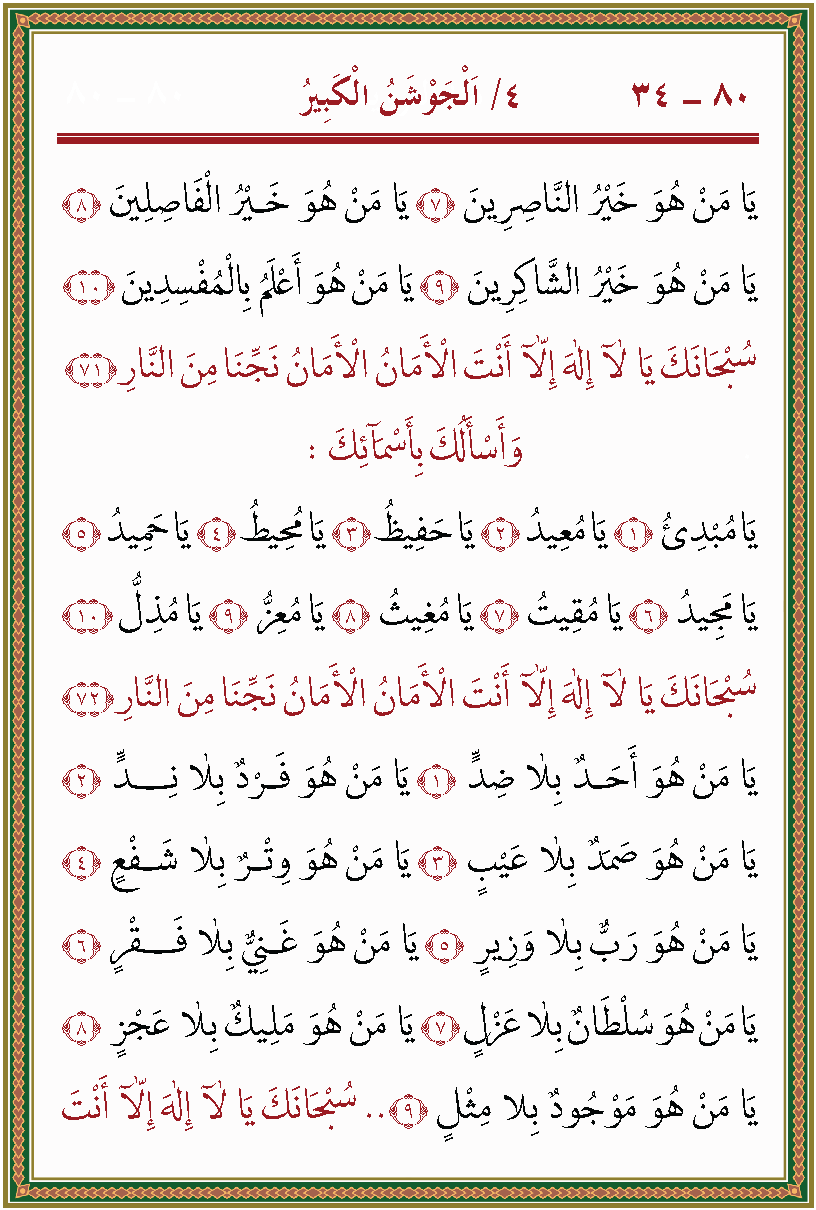 ٨٠ – ٣٤ ٤/ اَلْجَوْشَنُ الْكَبِيرُ
يَا مَنْ هُوَ خَيْرُ النَّاصِرِينَ ﴿٧﴾ يَا مَنْ هُوَ خَــيْرُ الْفَاصِلِينَ ﴿٨﴾
يَا مَنْ هُوَ خَيْرُ الشَّاكِرِينَ ﴿٩﴾ يَا مَنْ هُوَ أَعْلَمُ بِالْمُفْسِدِينَ ﴿١٠﴾
سُبْحَانَكَ يَا لَآ إِلٰهَ إِلَّآ أَنْتَ الْأَمَانُ الْأَمَانُ نَجِّنَا مِنَ النَّارِ ﴿٧١﴾
وَأَسْأَلُكَ بِأَسْمَآئِكَ :
يَا مُبْدِئُ ﴿١﴾ يَا مُعِيدُ ﴿٢﴾ يَا حَفِيظُ ﴿٣﴾ يَا مُحِيطُ ﴿٤﴾ يَا حَمِيدُ ﴿٥﴾
يَا مَجِيدُ ﴿٦﴾ يَا مُقِيتُ ﴿٧﴾ يَا مُغِيثُ ﴿٨﴾ يَا مُعِزُّ ﴿٩﴾ يَا مُذِلُّ ﴿١٠﴾
سُبْحَانَكَ يَا لَآ إِلٰهَ إِلَّآ أَنْتَ الْأَمَانُ الْأَمَانُ نَجِّنَا مِنَ النَّارِ ﴿٧٢﴾
يَا مَنْ هُوَ أَحَــدٌ بِلَا ضِدٍّ ﴿١﴾ يَا مَنْ هُوَ فَــرْدٌ بِلَا نِــــدٍّ ﴿٢﴾
يَا مَنْ هُوَ صَمَدٌ بِلَا عَيْبٍ ﴿٣﴾ يَا مَنْ هُوَ وِتْــرٌ بِلَا شَــفْعٍ ﴿٤﴾
يَا مَنْ هُوَ رَبٌّ بِلَا وَزِيرٍ ﴿٥﴾ يَا مَنْ هُوَ غَــنِيٌّ بِلَا فَــــقْرٍ ﴿٦﴾
يَا مَنْ هُوَ سُلْطَانٌ بِلَا عَزْلٍ ﴿٧﴾ يَا مَنْ هُوَ مَلِيكٌ بِلَا عَجْزٍ ﴿٨﴾
يَا مَنْ هُوَ مَوْجُودٌ بِلَا مِثْلٍ ﴿٩﴾.. سُبْحَانَكَ يَا لَآ إِلٰهَ إِلَّآ أَنْتَ